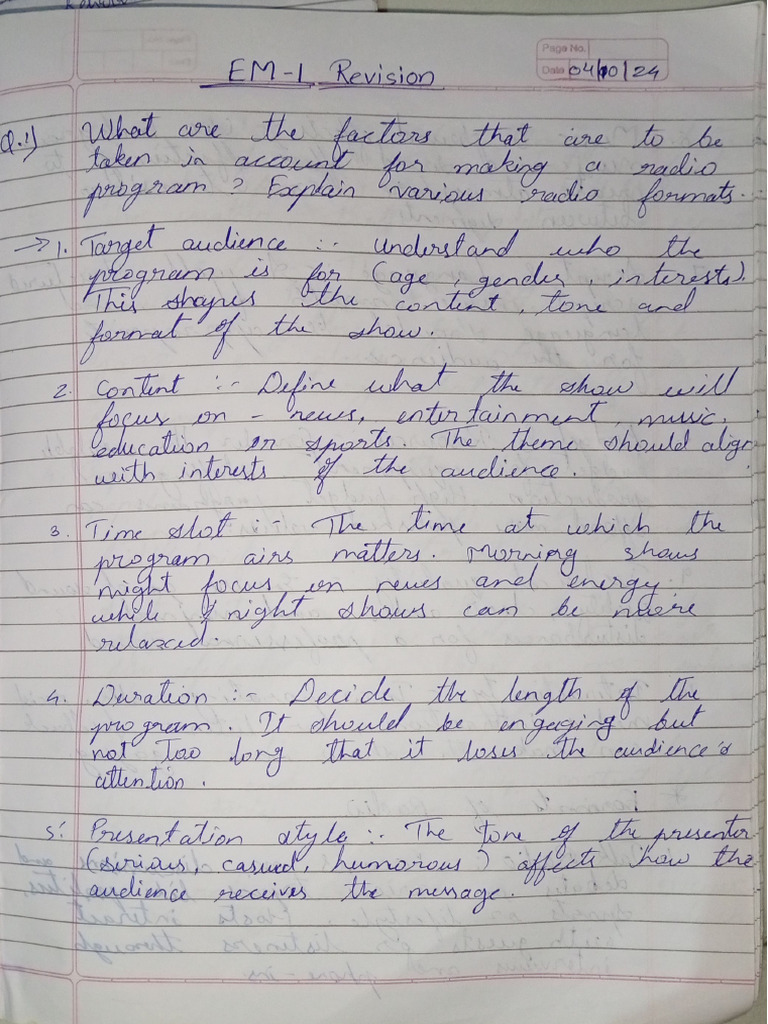 EM-1 Revision
Page No.
Date 04/10/24
Q.1) What are the factors that are to be
taken in account for making a radio
program? Explain various radio formats.
→ 1. Target audience :- understand who the
program is for (age, gender, interests).
This shapes the content, tone and
format of the show.
2. Content :- Define what the show will
focus on - news, entertainment, music,
education or sports. The theme should align
with interests of the audience.
3. Time slot :- The time at which the
program airs matters. Morning shows
might focus on news and energy
while night shows can be more
relaxed.
4. Duration :- Decide the length of the
program. It should be engaging but
not too long that it loses the audience's
attention.
5. Presentation style :- The tone of the presenter
(serious, casual, humorous) affects how the
audience receives the message.